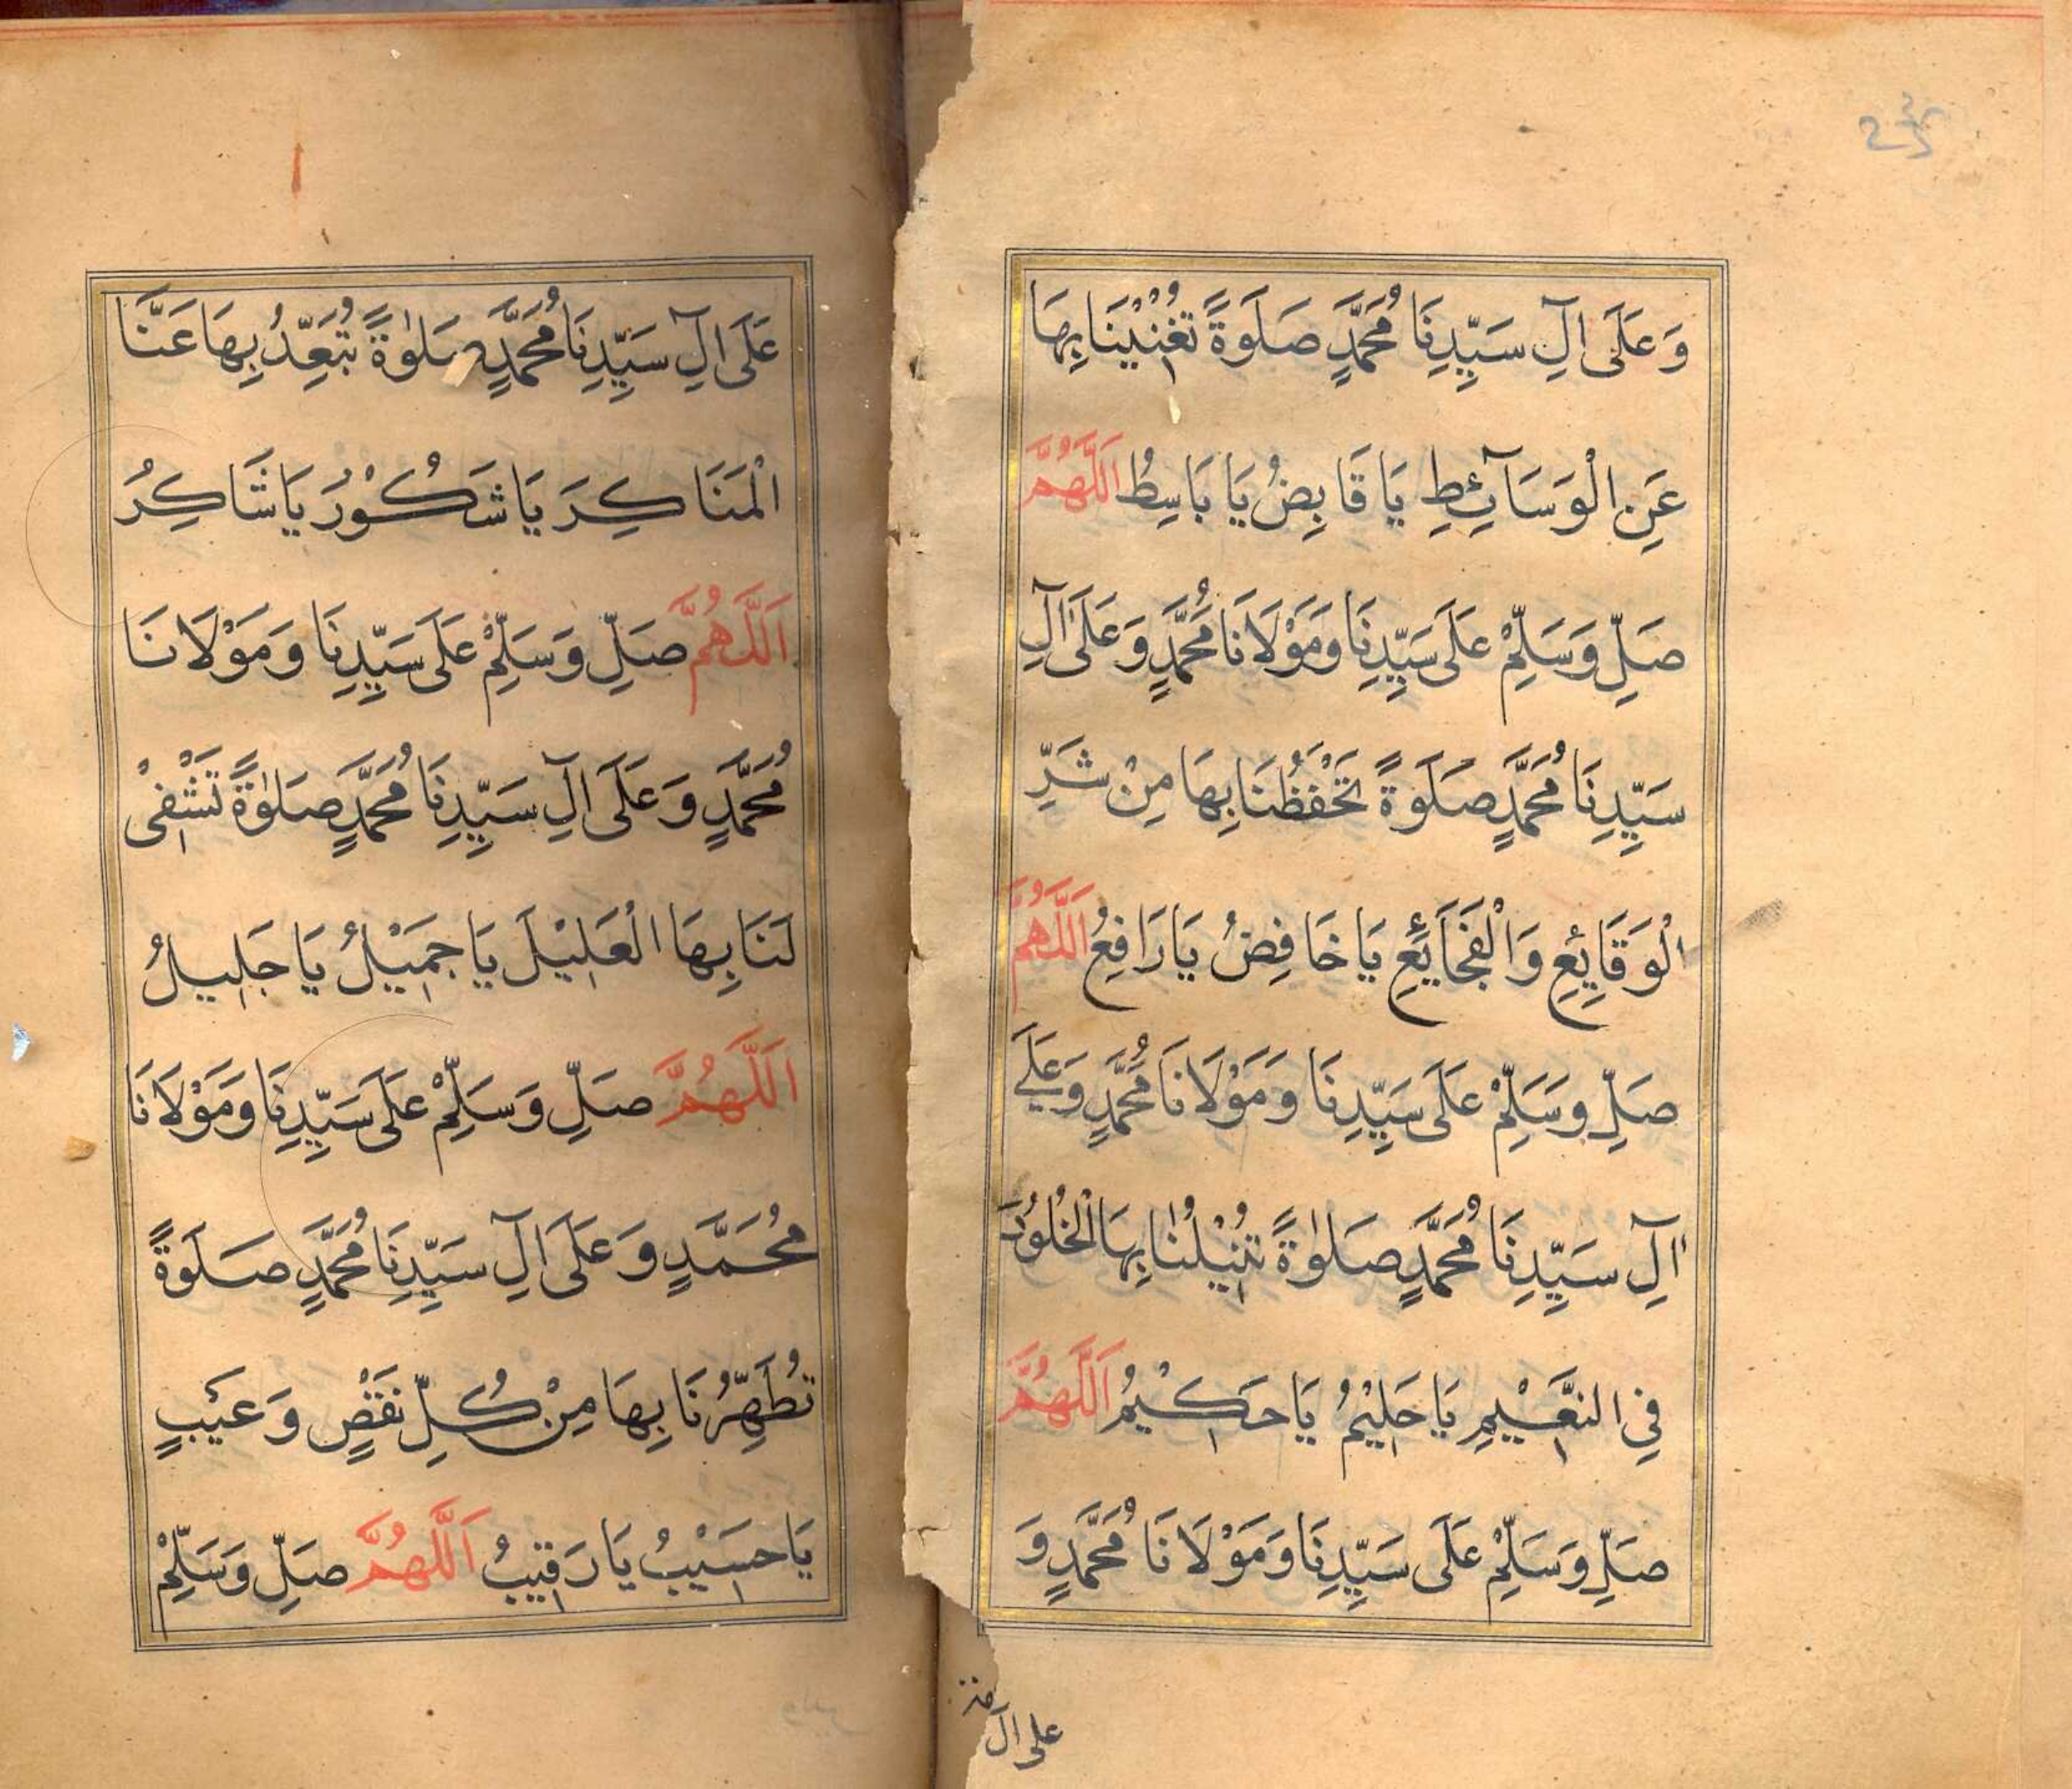 وَعَلَى اٰلِ سَيِّدِنَا مُحَمَّدٍ صَلَوةً تُغْنِيْنَا بِهَا
عَنِ الْوَسَآئِطِ يَا قَابِضُ يَا بَاسِطُ اَللّٰهُمَّ
صَلِّ وَسَلِّمْ عَلَى سَيِّدِنَا وَمَوْلَانَا مُحَمَّدٍ وَعَلَى اٰلِ
سَيِّدِنَا مُحَمَّدٍ صَلَوةً تَحْفَظُنَا بِهَا مِنْ شَرِّ
الْوَقَايِٕعِ وَالْفَجَايِٕعِ يَا خَافِضُ يَا رَافِعُ اَللّٰهُمَّ
صَلِّ وَسَلِّمْ عَلَى سَيِّدِنَا وَمَوْلَانَا مُحَمَّدٍ وَعَلَى
اٰلِ سَيِّدِنَا مُحَمَّدٍ صَلٰوةً تُنِيْلُنَا بِهَا الْخُلُوْدَ
فِي النَّعِيْمِ يَا حَلِيْمُ يَا حَكِيْمُ اَللّٰهُمَّ
صَلِّ وَسَلِّمْ عَلَى سَيِّدِنَا وَمَوْلَانَا مُحَمَّدٍ وَ
على اٰل
عَلَى اٰلِ سَيِّدِنَا مُحَمَّدٍ صَلٰوةً تُبَعِّدُ بِهَا عَنَّا
الْمَنَاكِرَ يَا شَكُوْرُ يَا شَاكِرُ
اَللّٰهُمَّ صَلِّ وَسَلِّمْ عَلَى سَيِّدِنَا وَمَوْلَانَا
مُحَمَّدٍ وَعَلَى اٰلِ سَيِّدِنَا مُحَمَّدٍ صَلٰوةً تَشْفِىْ
لَنَا بِهَا الْعَلِيْلَ يَا جَمِيْلُ يَا جَلِيلُ
اَللّٰهُمَّ صَلِّ وَسَلِّمْ عَلَى سَيِّدِنَا وَمَوْلَانَا
مُحَمَّدٍ وَعَلَى اٰلِ سَيِّدِنَا مُحَمَّدٍ صَلَوةً
تُطَهِّرُنَا بِهَا مِنْ كُلِّ نَقْصٍ وَعَيْبٍ
يَا حَسِيْبُ يَا رَقِيْبُ اَللّٰهُمَّ صَلِّ وَسَلِّمْ